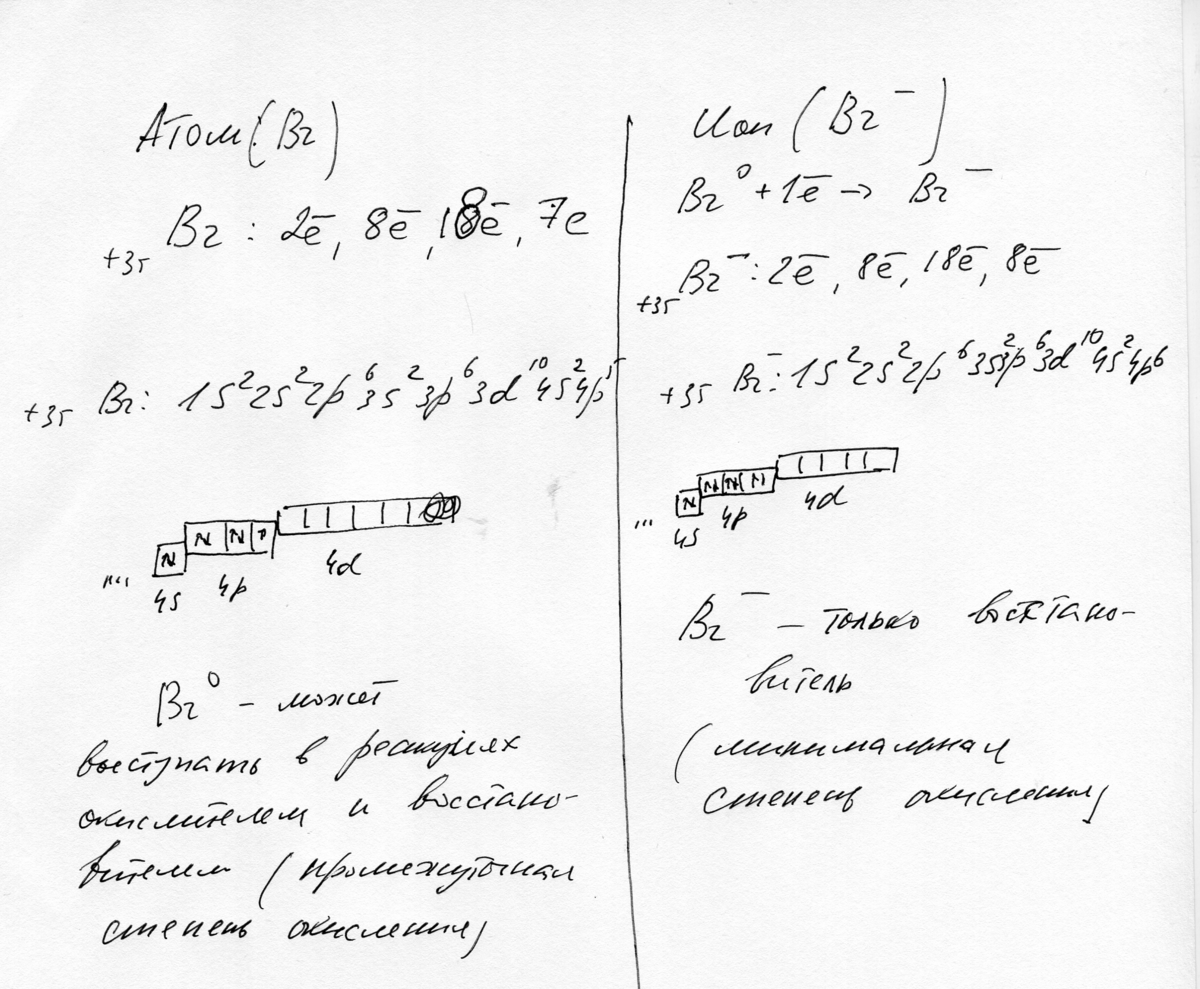 Атом (Br)
+35 Br : 2ē, 8ē, 18ē, 7e
+35 Br: 1s²2s²2p⁶3s²3p⁶3d¹⁰4s²4p⁵
... 4s 4p 4d
Br⁰ – может
выступать в реакциях
окислителем и восстано-
вителем (промежуточная
степень окисления)
Ион (Br⁻)
Br⁰ + 1ē → Br⁻
+35 Br⁻ : 2ē, 8ē, 18ē, 8ē
+35 Br⁻: 1s²2s²2p⁶3s²3p⁶3d¹⁰4s²4p⁶
... 4s 4p 4d
Br⁻ – только восстано-
витель
(минимальная
степень окисления)